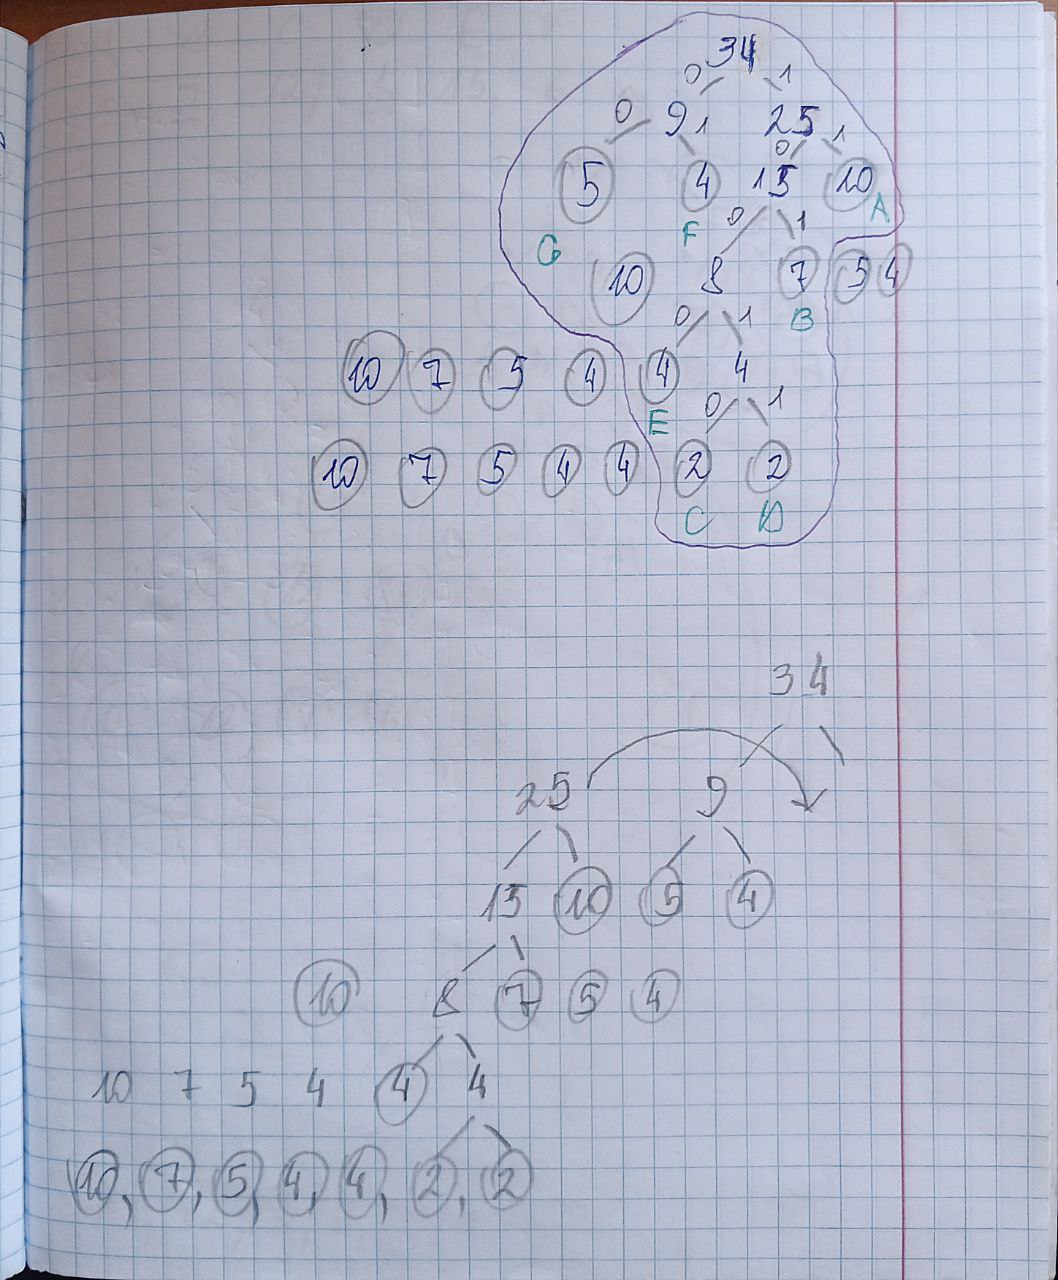 34
0 1
0 9 1 25 1
0
5 4 15 10
A
F 0 1
G
10 8 7 5 4
0 1 B
10 7 5 4 4 4
E 0 1
10 7 5 4 4 2 2
C D
34
25 9
15 10 5 4
10 8 7 5 4
10 7 5 4 4 4
10, 7, 5, 4, 4, 2, 2